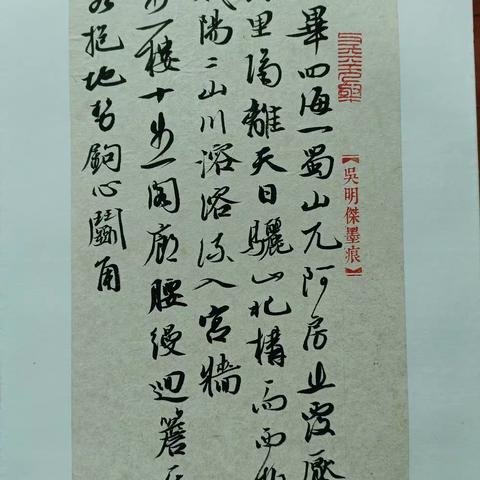 畢四海一蜀山兀阿房出覆壓
里隔離天日驪山北構而西
陽二川溶溶流入宮牆
步一樓十步一閣廊腰縵迴簷
抱地勢鉤心鬭角
【吳明傑墨痕】